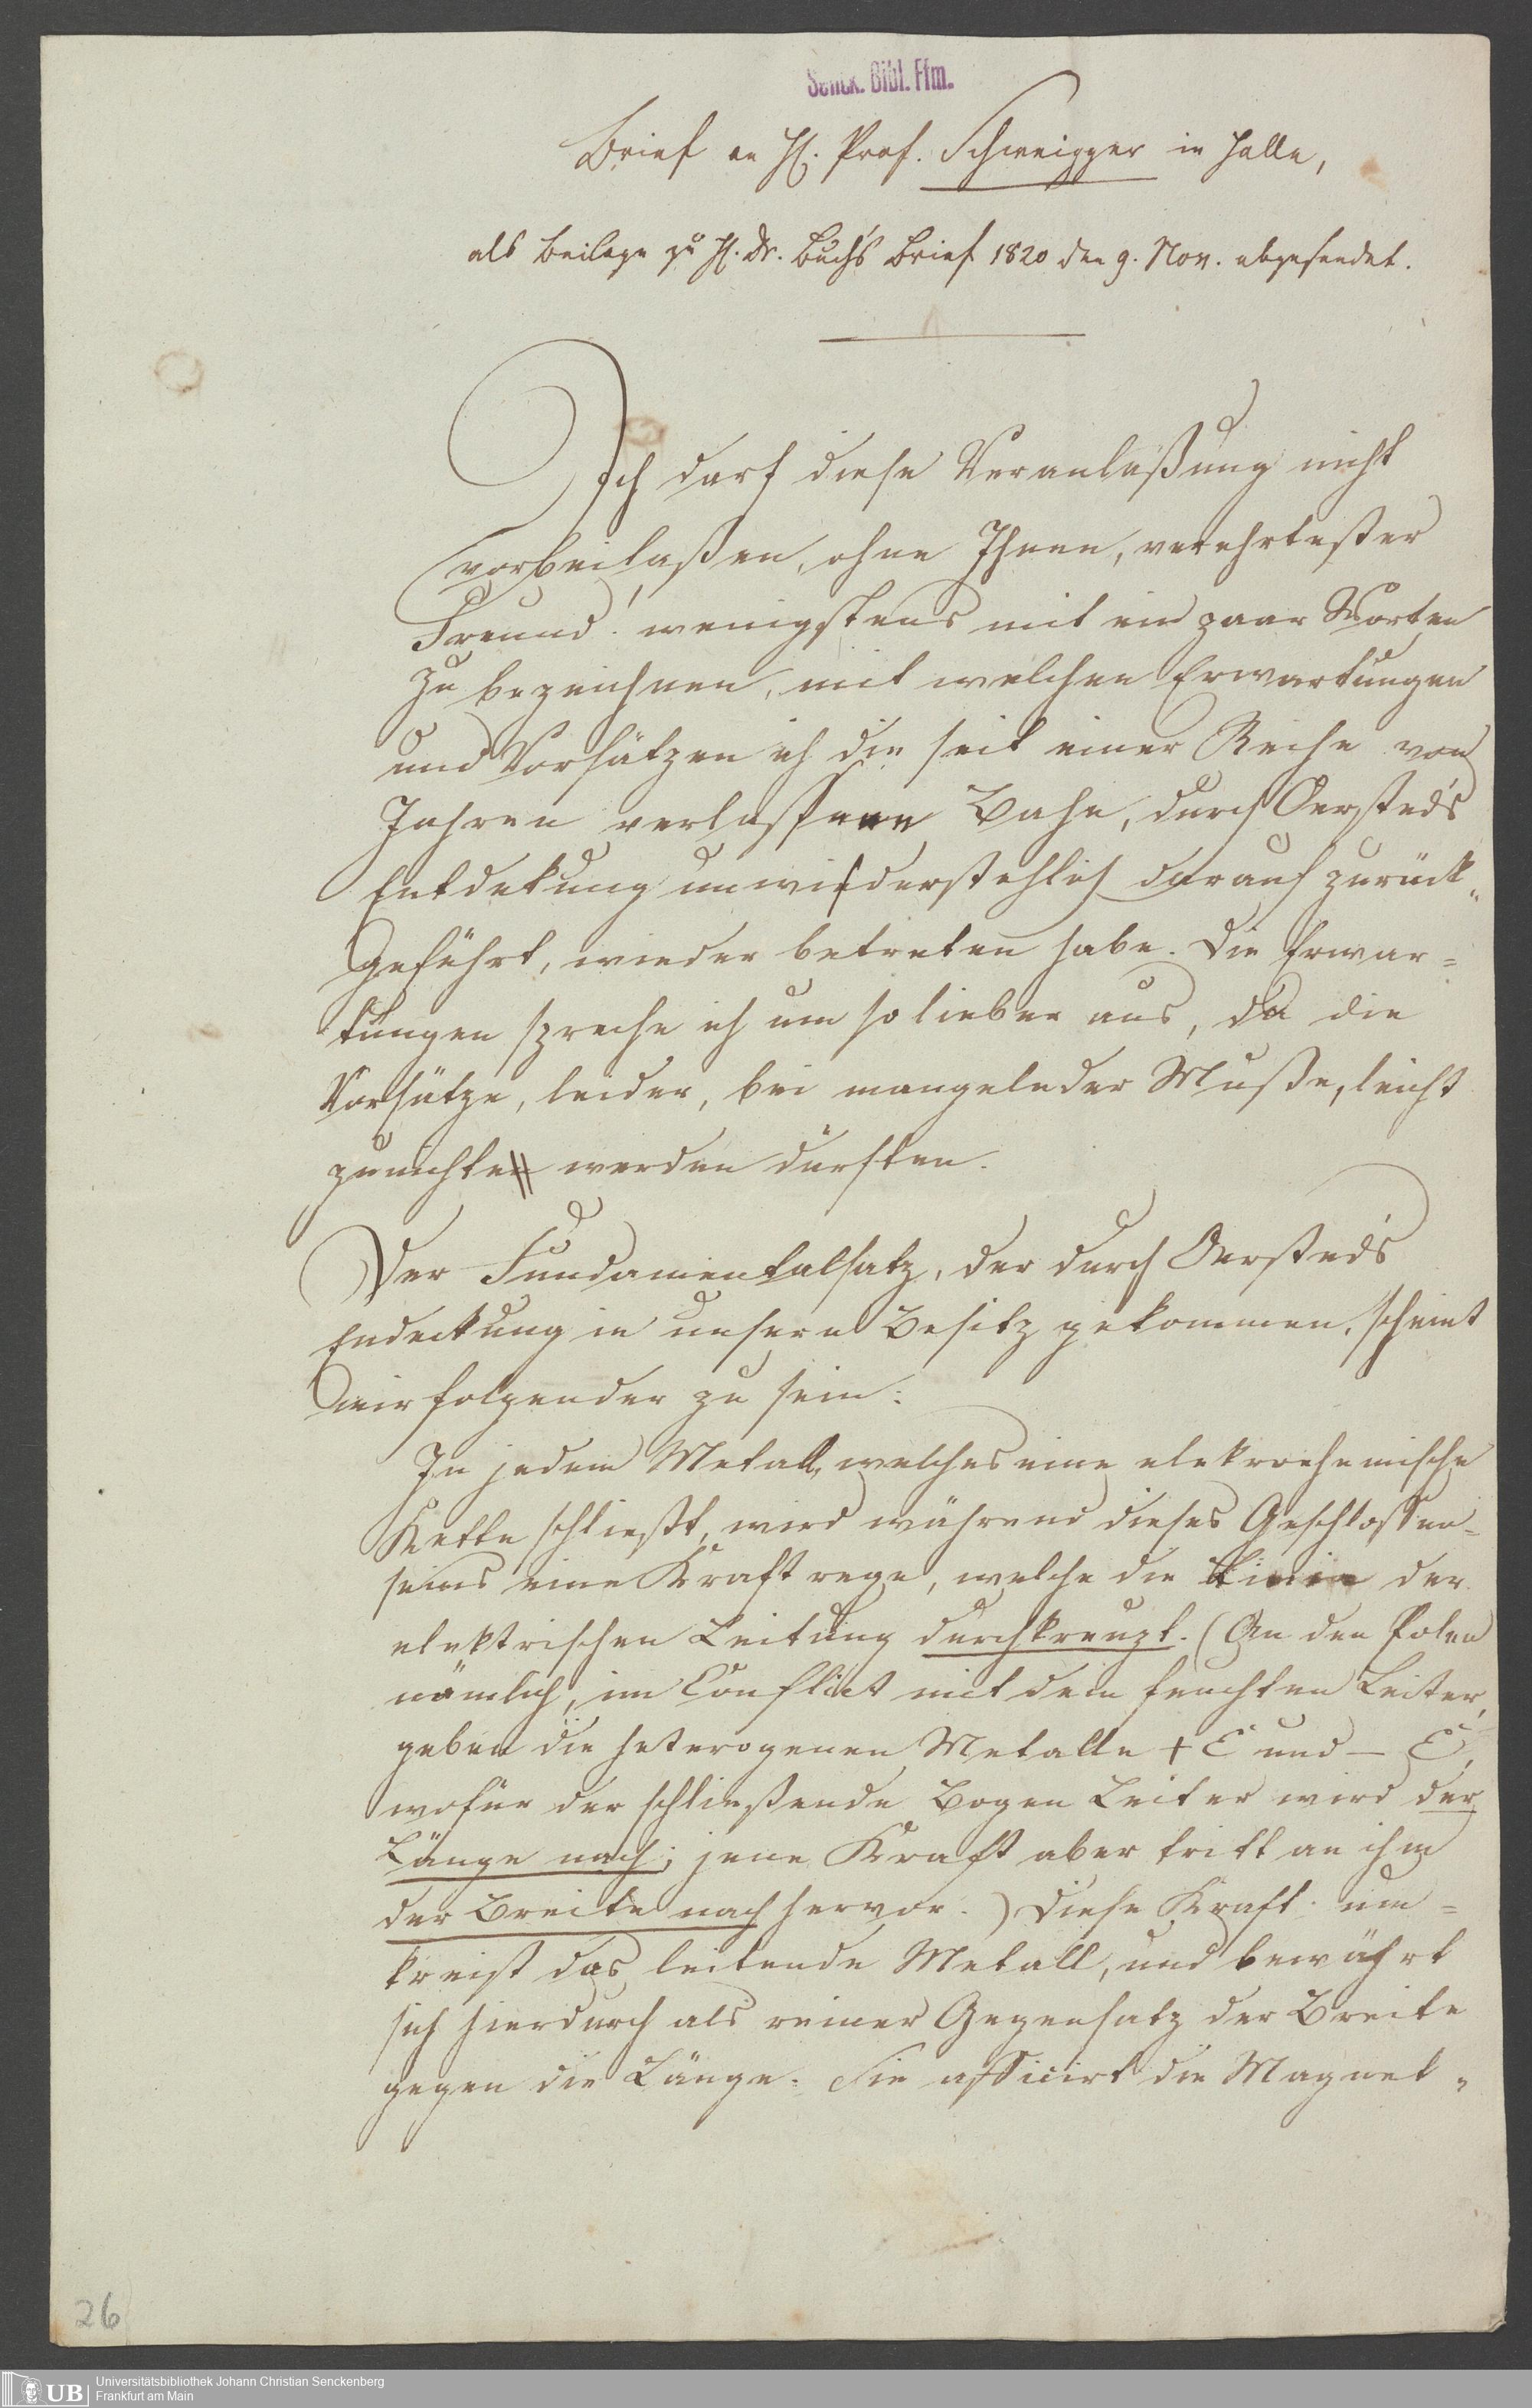 Senck. Bibl. Ffm.
Brief an H. Prof. Schweigger in Halle,
als Beilage zu H. Dr. Buch's Brief 1820 den 9. Nov. abgesendet.
Ich darf diese Veranlaßung nicht
vorbeilaßen, ohne Ihnen, verehrtester
Freund! wenigstens mit ein paar Worten
zu bezeichnen, mit welchen Erwartungen
und Vorsätzen ich die seit einer Reihe von
Jahren verlassene Bahn, durch Oersted's
Entdekung unwiderstehlich darauf zurück-
geführt, wieder betreten habe. Die Erwar=
tungen spreche ich um so lieber aus, da die
Vorsätze, leider, bei mangelnder Muße, leicht
zunichte werden dürften.
Der Fundamentalsatz, der durch Oersted's
Endeckung in unsern Besitz gekommen, scheint
mir folgender zu sein:
In jedem Metall, welches eine elekrochemische
Kette schließt, wird während dieses Geschlossen=
seins eine Kraft rege, welche die Linie der
elektrischen Leitung durchkreuzt. (An den Polen
nämlich, im Conflict mit dem feuchten Leiter,
geben die heterogenen Metalle + E und — E,
wofür der schließende Bogen Leiter wird der
Länge nach; jene Kraft aber tritt an ihm
der Breite nach hervor.) Diese Kraft um=
kreist das leitende Metall, und bewährt
sich hierdurch als reiner Gegensatz der Breite
gegen die Länge. Sie afficirt die Magnet-
26
UB
Universitätsbibliothek Johann Christian Senckenberg
Frankfurt am Main